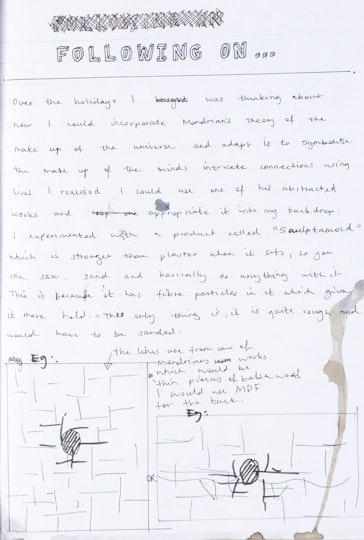 FOLLOWING ON...
Over the holidays I was thinking about
how I could incorporate Mondrian's theory of the
make up of the universe and adapt it to symbolise
the make up of the minds intricate connections using
lines. I realised I could use one of his abstracted
works and appropriate it into my backdrop.
I experimented with a product called "Sculptamold"
which is stronger than plaster when it sets, so you
can saw, sand and basically do anything with it.
This is because it has fibre particles in it which give
it more hold. The only thing is, it is quite rough and
would have to be sanded.
Eg:
the lines are from one of
mondrians works
which would be
thin pieces of balsa wood
I would use MDF
for the back.
Eg:
OR